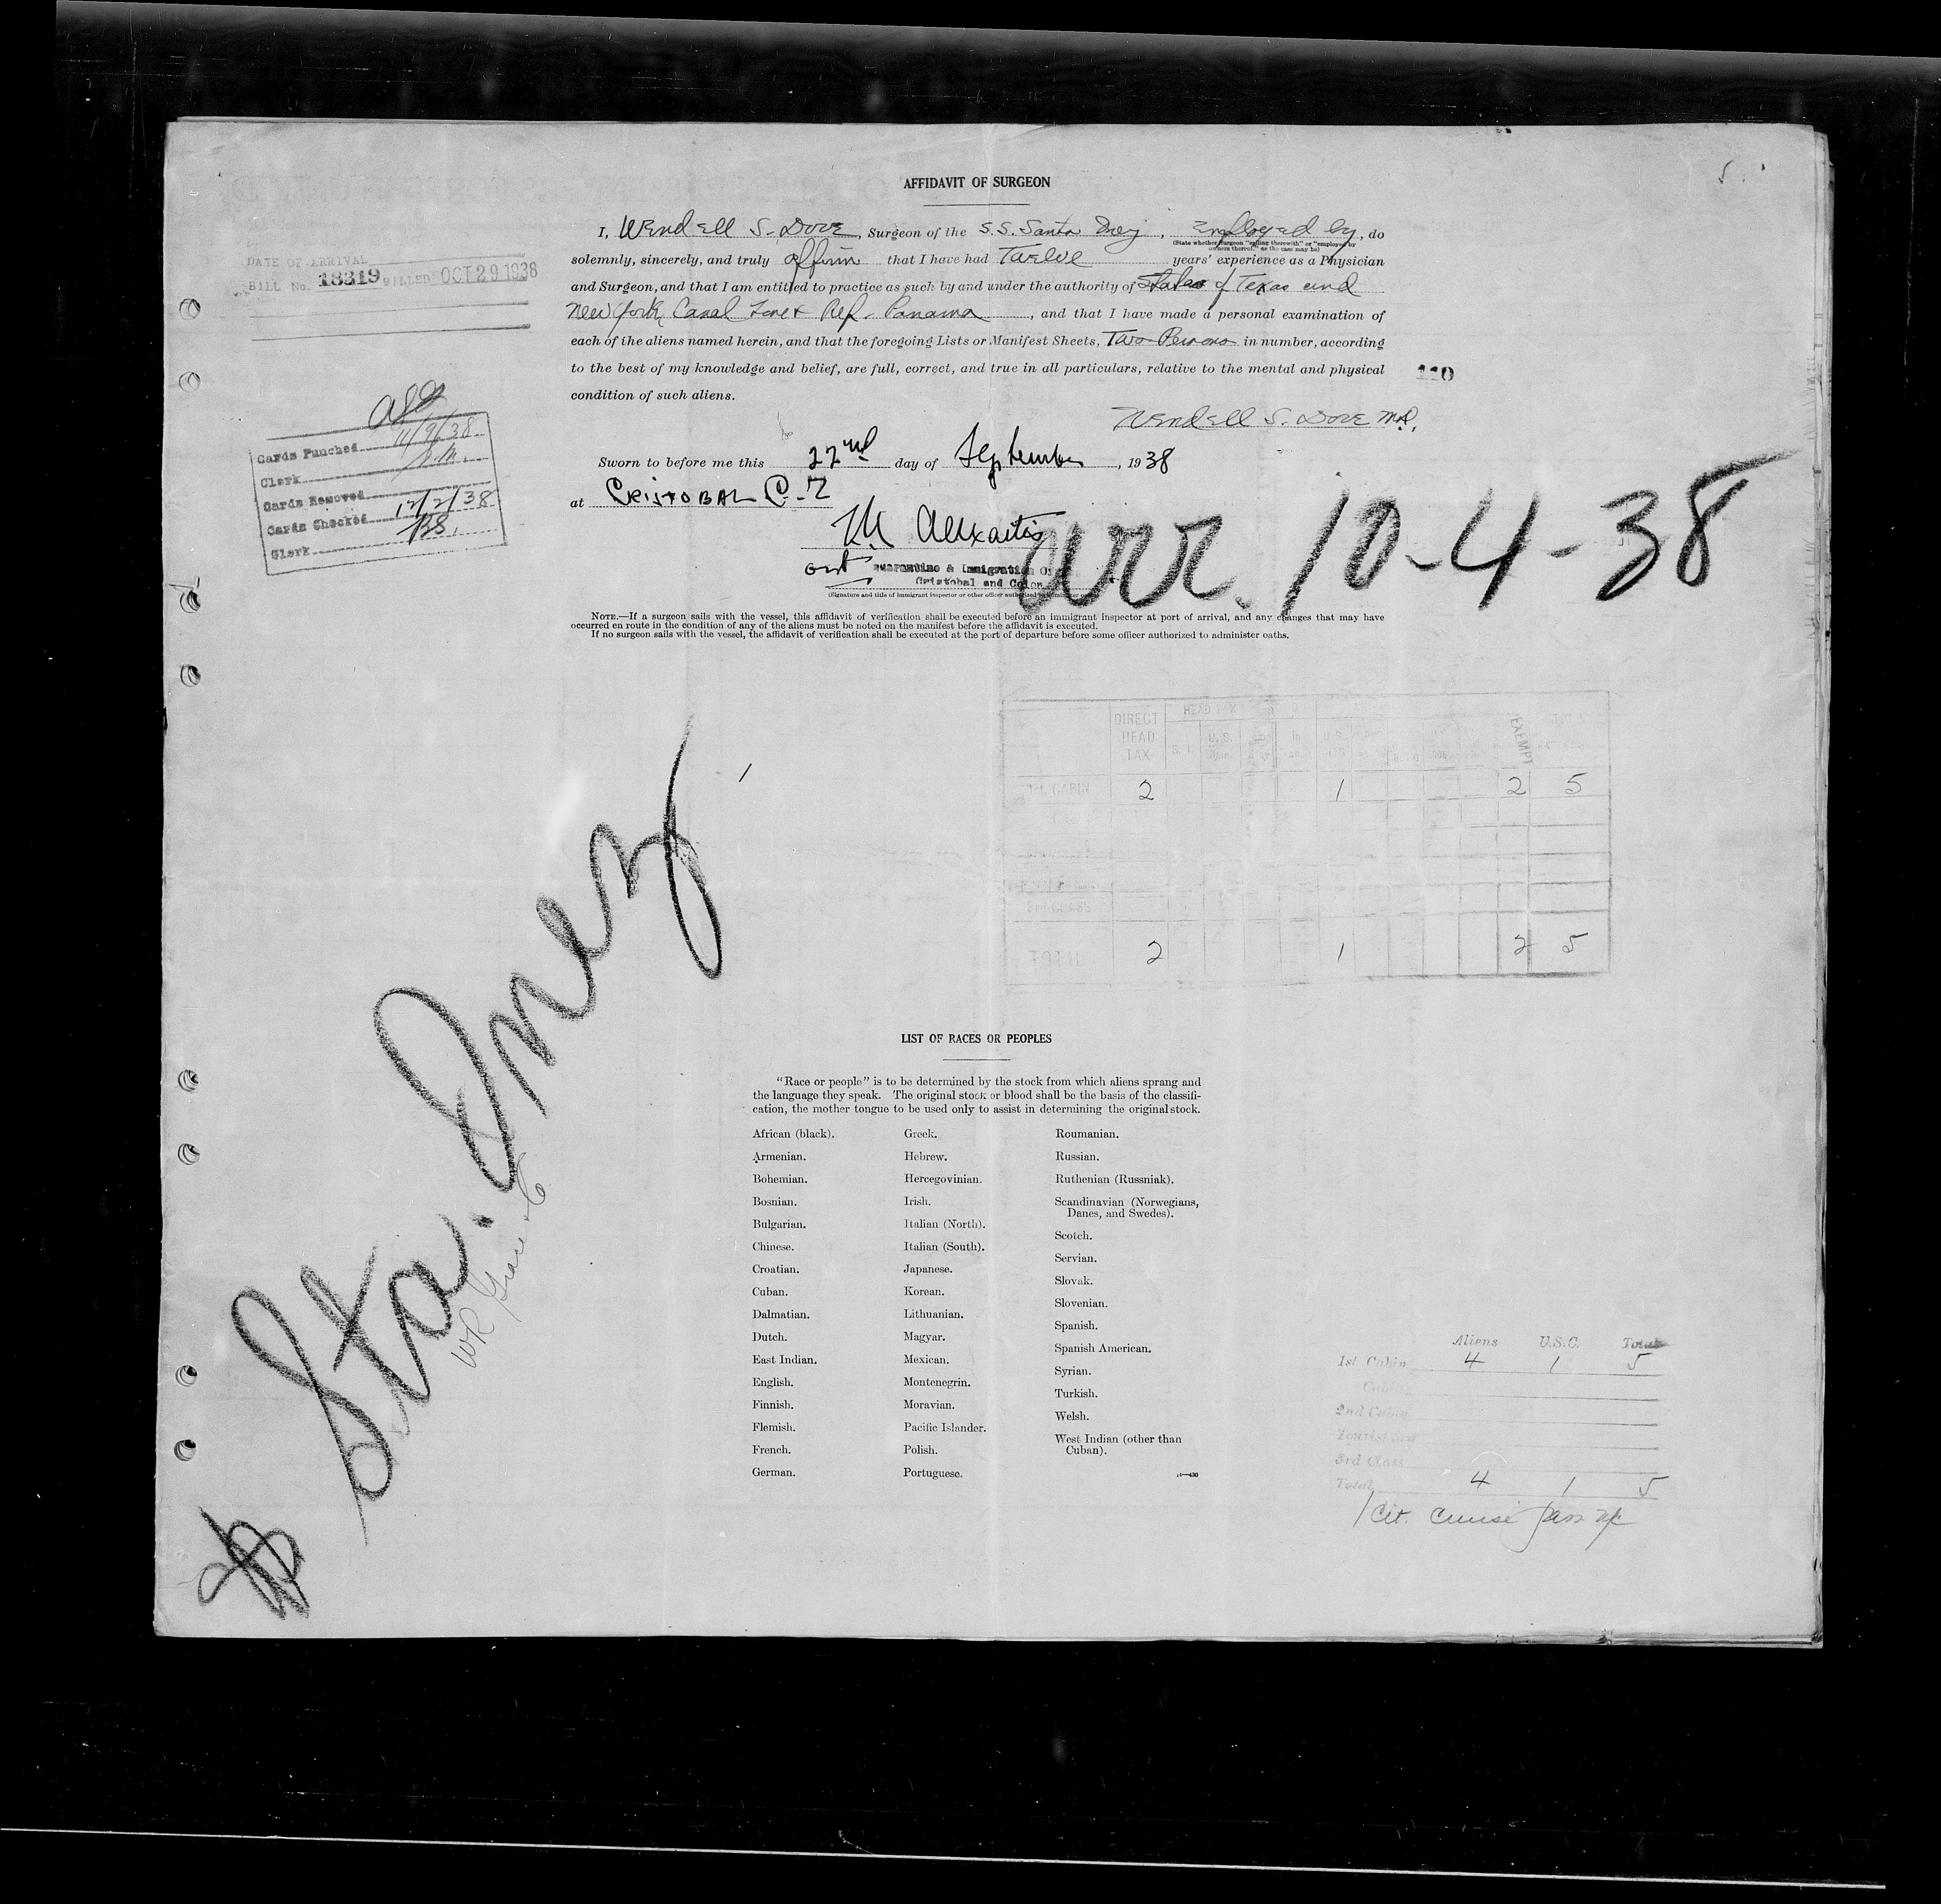 AFFIDAVIT OF SURGEON
I, Wendell S. Dove, Surgeon of the S.S. Santa Inez, Employed by, do
(State whether surgeon "sailing therewith" or "employed by
owners thereof," as the case may be)
solemnly, sincerely, and truly affirm that I have had Twelve years' experience as a Physician
and Surgeon, and that I am entitled to practice as such by and under the authority of States of Texas and
New York, Canal Zone & Rep. Panama, and that I have made a personal examination of
each of the aliens named herein, and that the foregoing Lists or Manifest Sheets, Two Persons in number, according
to the best of my knowledge and belief, are full, correct, and true in all particulars, relative to the mental and physical
condition of such aliens.
110
Wendell S. Dove M.D.
Sworn to before me this 22nd day of September, 1938
at CRISTOBAL C.Z
Quarantine & Immigration
Cristobal and Colon
(Signature and title of immigrant inspector or other officer
10-4-38
NOTE.—If a surgeon sails with the vessel, this affidavit of verification shall be executed before an immigrant inspector at port of arrival, and any changes that may have
occurred en route in the condition of any of the aliens must be noted on the manifest before the affidavit is executed.
If no surgeon sails with the vessel, the affidavit of verification shall be executed at the port of departure before some officer authorized to administer oaths.
DATE OF ARRIVAL
BILL No. 18319 BILLED OCT 29 1938
Cards Punched 11/9/38
Clerk
Cards Removed
Cards Checked 12/2/38
Clerk BS.
DIRECT HEAD TAX
HEAD TAX
U.S.
EXEMPT
1st CABIN 2 1 2 5
3rd CLASS
TOTAL 2 1 2 5
Sta. Inez
WR Grace Co
LIST OF RACES OR PEOPLES
"Race or people" is to be determined by the stock from which aliens sprang and
the language they speak. The original stock or blood shall be the basis of the classifi-
cation, the mother tongue to be used only to assist in determining the original stock.
African (black).
Armenian.
Bohemian.
Bosnian.
Bulgarian.
Chinese.
Croatian.
Cuban.
Dalmatian.
Dutch.
East Indian.
English.
Finnish.
Flemish.
French.
German.
Greek.
Hebrew.
Hercegovinian.
Irish.
Italian (North).
Italian (South).
Japanese.
Korean.
Lithuanian.
Magyar.
Mexican.
Montenegrin.
Moravian.
Pacific Islander.
Polish.
Portuguese.
Roumanian.
Russian.
Ruthenian (Russniak).
Scandinavian (Norwegians,
Danes, and Swedes).
Scotch.
Servian.
Slovak.
Slovenian.
Spanish.
Spanish American.
Syrian.
Turkish.
Welsh.
West Indian (other than
Cuban).
Aliens U.S.C. Total
1st Cabin 4 1 5
Cabin
2nd Cabin
Tourist
3rd Class
Total 4 1 5
1 Cit. Cruise pass